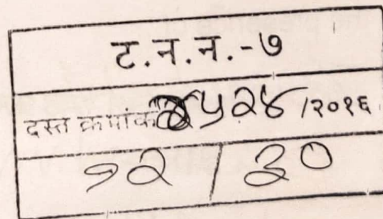 ट.न.न.-७
दस्त क्रमांक ५२४ /२०१६
१२ / ३०